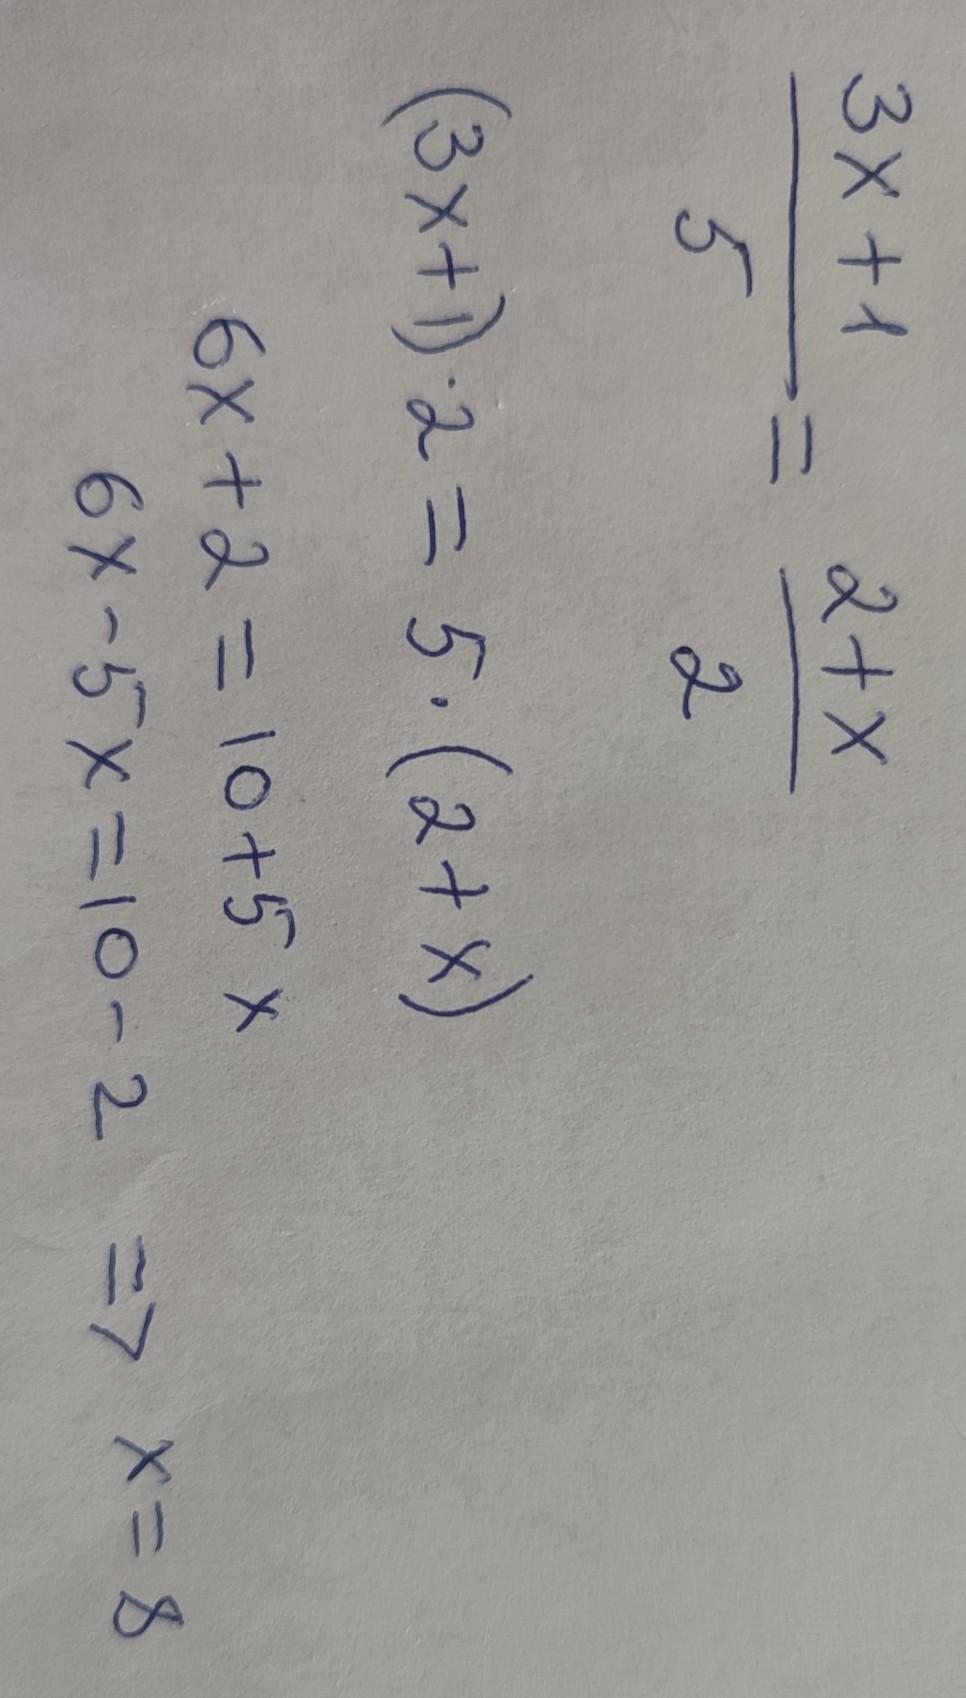 3x+1
5
=
2+x
2
(3x+1)·2=5·(2+x)
6x+2=10+5x
6x-5x=10-2 => x=8